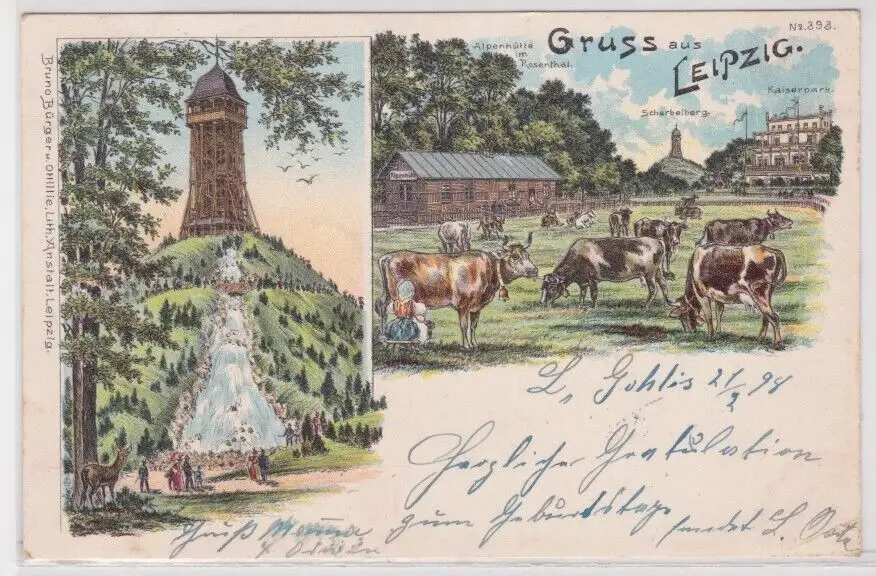 No. 898.
Gruss aus
Leipzig.
Alpenhütte
im
Rosenthal.
Scherbelberg.
Kaiserpark.
Alpenhütte
Bruno Bürger u. Ottillie, Lith. Anstalt. Leipzig.
L. Gohlis 21/2 98
Herzliche Gratulation
zum Geburtstage
sendet L.
Gruß Mama